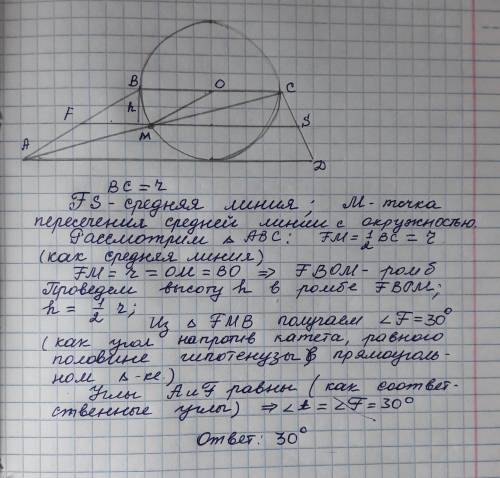 B O C
F h
M S
A
D
BC = r
FS - средняя линия; М - точка
пересечения средней линии с окружностью.
Рассмотрим △ ABC: FM = 1/2 BC = r
(как средняя линия)
FM = r = OM = BO ⇒ FBOM - ромб
Проведем высоту h в ромбе FBOM;
h = 1/2 r;
Из △ FMB получаем ∠F = 30°
(как угол напротив катета, равного
половине гипотенузы в прямоуголь-
ном △-ке.)
Углы А и F равны (как соответ-
ственные углы) ⇒ ∠A = ∠F = 30°
Ответ: 30°